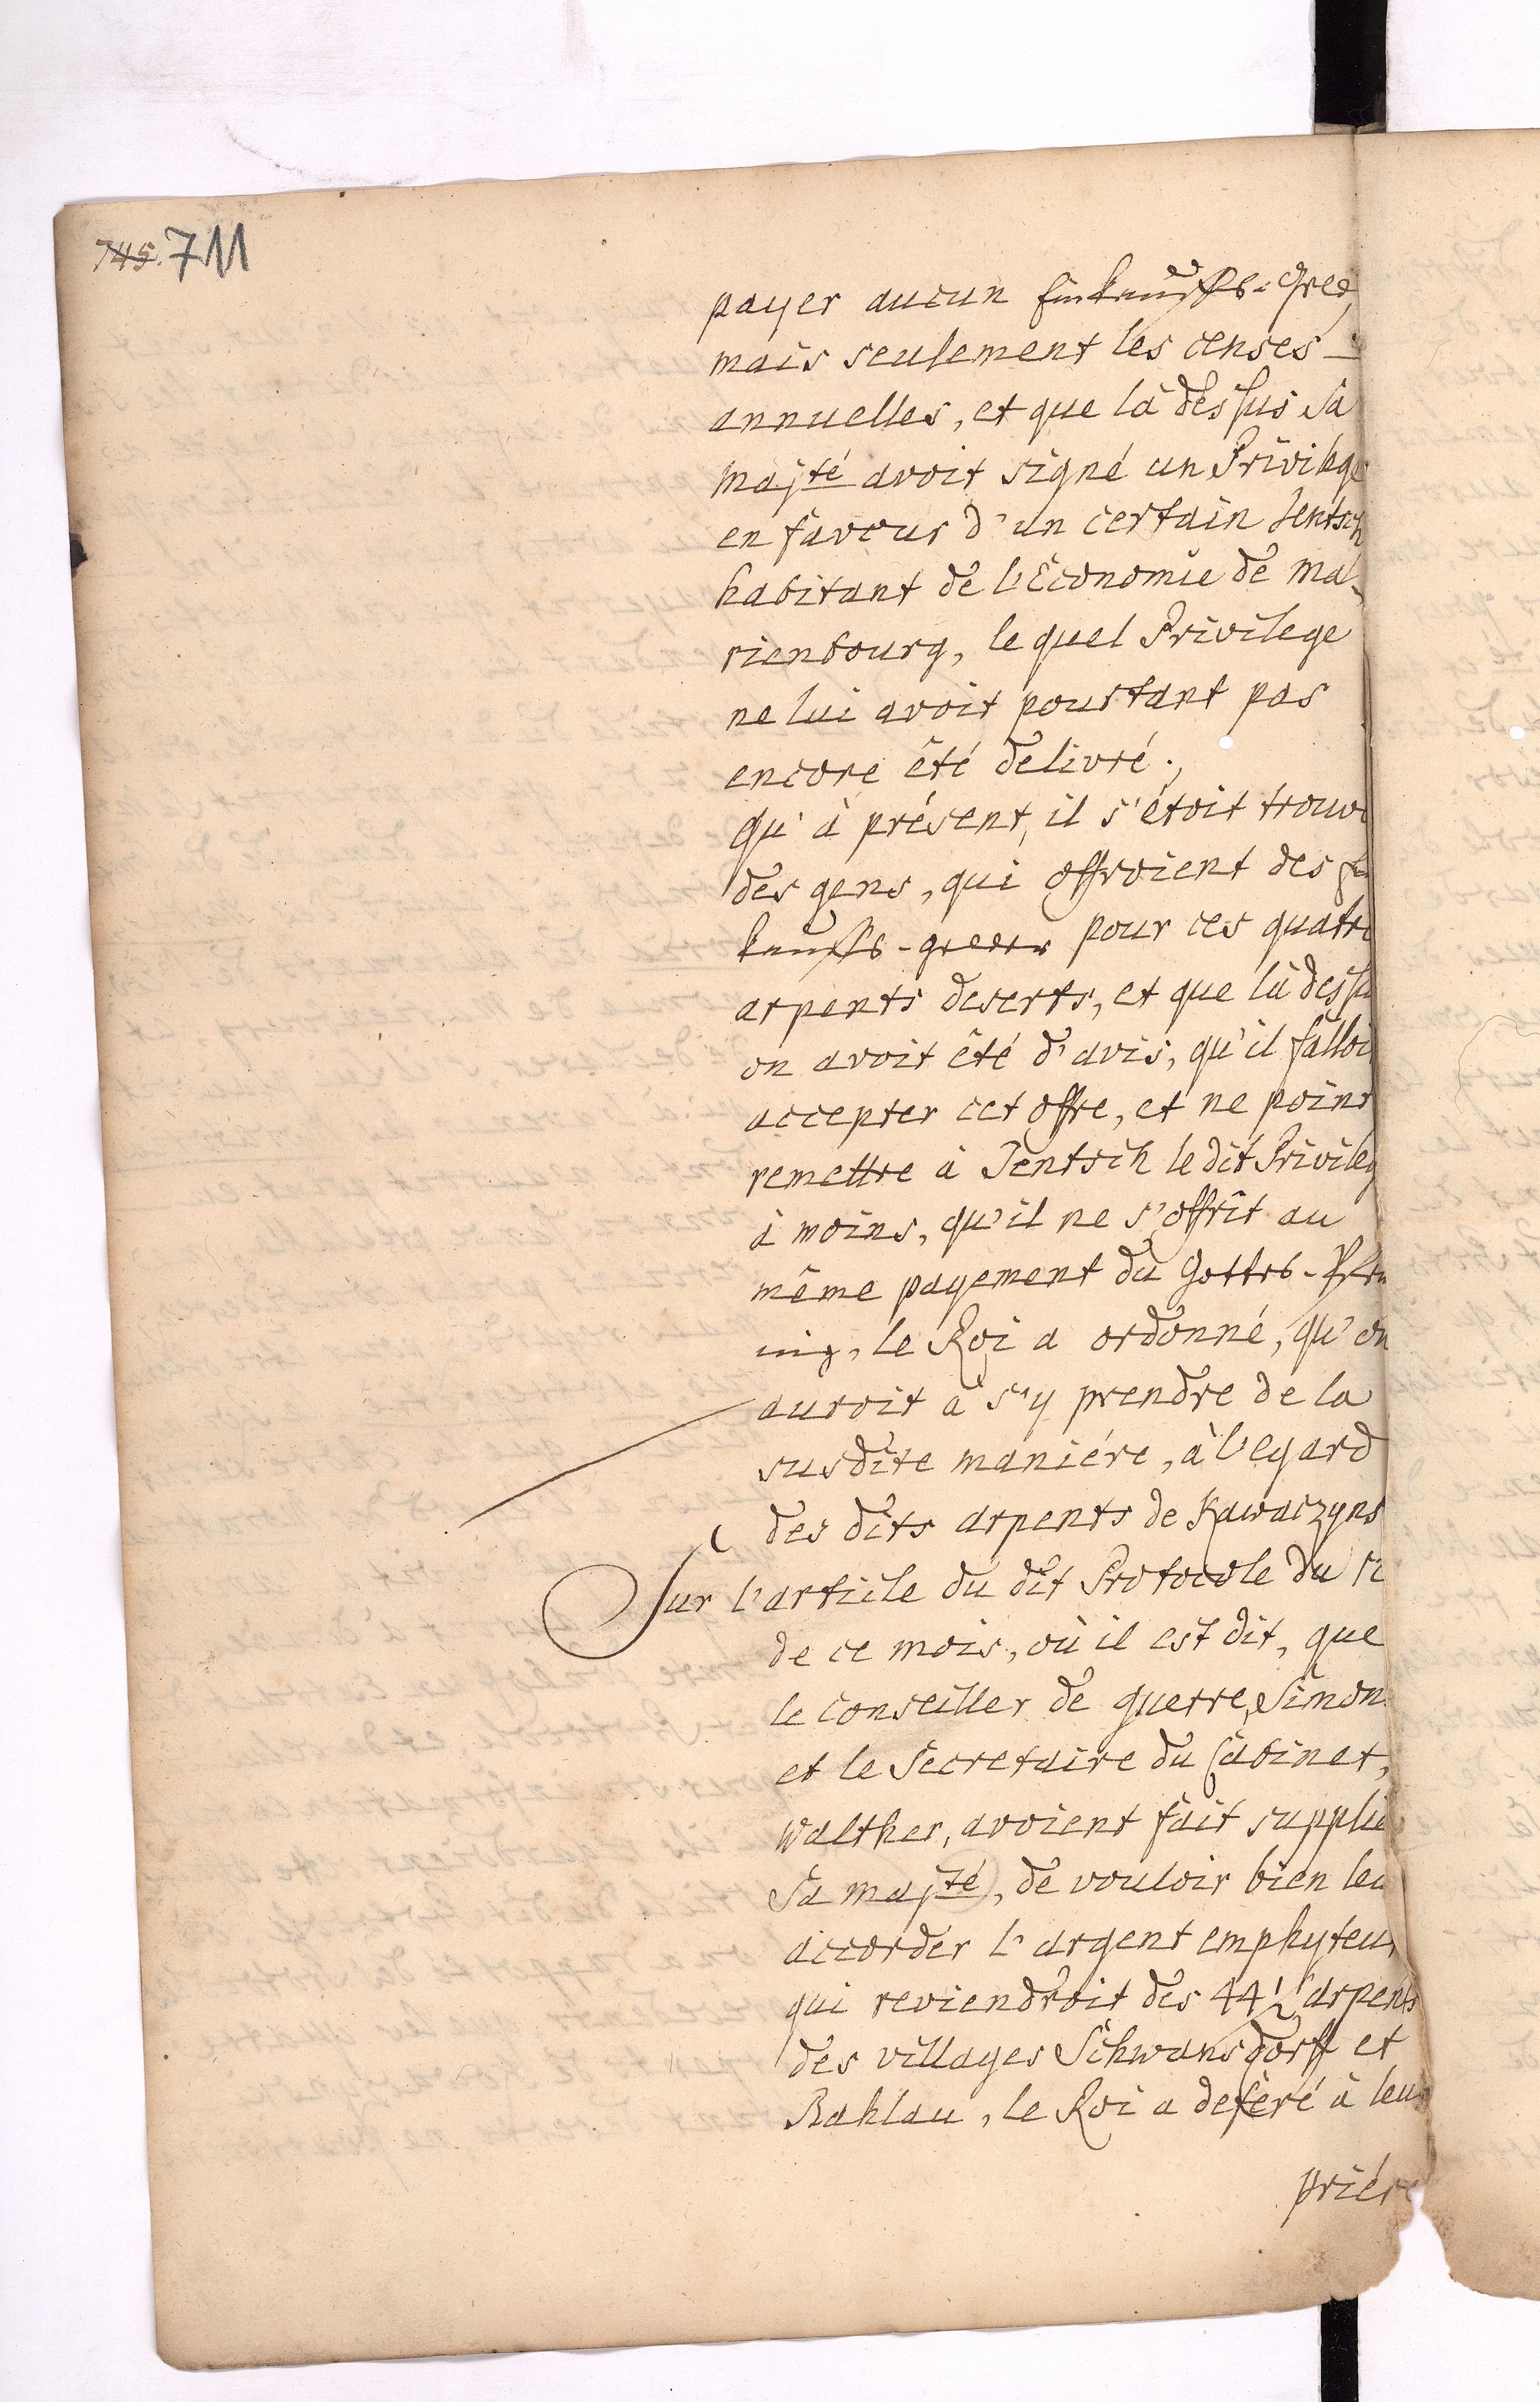 745. 711
payer aucun Einkauffs-Geld,
mais seulement les censes
annuelles, et que là dessus Sa
Majté avoit signé un Privilege
en faveur d'un certain Jentsch
habitant de l'Economie de Ma-
rienbourg, le quel Privilege
ne lui avoit pourtant pas
encore été delivré.,
qu'à présent, il s'étoit trouvé
des gens, qui offroient des Ein
kauffs-Gelder pour ces quatre
arpents deserts, et que là dessu
on avoit été d'avis, qu'il falloi
accepter cet offre, et ne point
remettre à Jentsch le dit Privileg
à moins, qu'il ne s'offrît au
même payement du Gottes-Pfen
nig, le Roi a ordonné, qu'on
auroit à s'y prendre de la
susdite maniére, à l'egard
des dits arpents de Kawaczyns
Sur l'article du dit Protocole du 12
de ce mois, où il est dit, que
le Conseiller de guerre, Simon
et le Secretaire du Cabinet,
Walther, avoient fait supplie
Sa Majté, de vouloir bien leu
accorder l'argent emphyteu
qui reviendroit des 44½ arpents
des villages Schwansdorff et
Baklau, le Roi a deferé à leur
priére